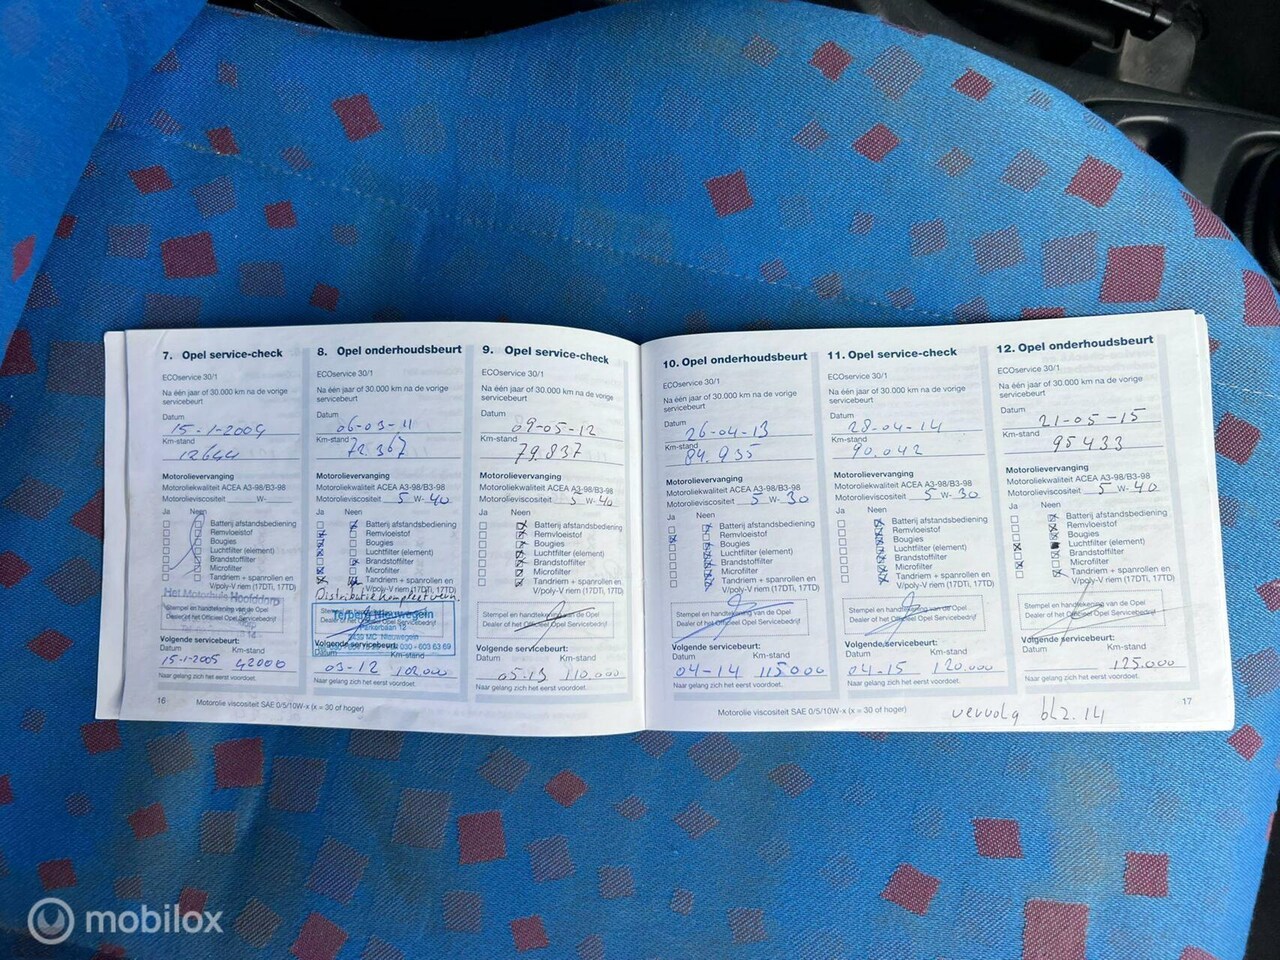 7. Opel service-check
ECOservice 30/1
Na één jaar of 30.000 km na de vorige
servicebeurt
Datum
15-1-2004
Km-stand
12644
Motorolievervanging
Motoroliekwaliteit ACEA A3-98/B3-98
Motorolieviscositeit W-
Ja Neen
Batterij afstandsbediening
Remvloeistof
Bougies
Luchtfilter (element)
Brandstoffilter
Microfilter
Tandriem + spanrollen en
V/poly-V riem (17DTi, 17TD)
Het Motorhuis Hoofddorp
Stempel en handtekening van de Opel
Dealer of het Officieel Opel Servicebedrijf
Volgende servicebeurt:
Datum Km-stand
15-1-2005 42000
Naar gelang zich het eerst voordoet.
16
8. Opel onderhoudsbeurt
ECOservice 30/1
Na één jaar of 30.000 km na de vorige
servicebeurt
Datum
06-03-11
Km-stand
72.367
Motorolievervanging
Motoroliekwaliteit ACEA A3-98/B3-98
Motorolieviscositeit 5 W-40
Ja Neen
Batterij afstandsbediening
Remvloeistof
Bougies
Luchtfilter (element)
Brandstoffilter
Microfilter
Tandriem + spanrollen en
V/poly-V riem (17DTi, 17TD)
Distributie kompleet vern.
Stempel en handtekening van de Opel
Nieuwegein
Dealer of het Officieel Opel Servicebedrijf
Parkerbaan 12
3439 MC Nieuwegein
030 - 603 63 69
Volgende servicebeurt:
Datum Km-stand
03-12 102.000
Naar gelang zich het eerst voordoet.
9. Opel service-check
ECOservice 30/1
Na één jaar of 30.000 km na de vorige
servicebeurt
Datum
09-05-12
Km-stand
79.837
Motorolievervanging
Motoroliekwaliteit ACEA A3-98/B3-98
Motorolieviscositeit 5 W-40
Ja Neen
Batterij afstandsbediening
Remvloeistof
Bougies
Luchtfilter (element)
Brandstoffilter
Microfilter
Tandriem + spanrollen en
V/poly-V riem (17DTi, 17TD)
Stempel en handtekening van de Opel
Dealer of het Officieel Opel Servicebedrijf
Volgende servicebeurt:
Datum Km-stand
05-13 110.000
Naar gelang zich het eerst voordoet.
Motorolie viscositeit SAE 0/5/10W-x (x = 30 of hoger)
10. Opel onderhoudsbeurt
ECOservice 30/1
Na één jaar of 30.000 km na de vorige
servicebeurt
Datum
26-04-13
Km-stand
84.935
Motorolievervanging
Motoroliekwaliteit ACEA A3-98/B3-98
Motorolieviscositeit 5 W-30
Ja Neen
Batterij afstandsbediening
Remvloeistof
Bougies
Luchtfilter (element)
Brandstoffilter
Microfilter
Tandriem + spanrollen en
V/poly-V riem (17DTi, 17TD)
Stempel en handtekening van de Opel
Dealer of het Officieel Opel Servicebedrijf
Volgende servicebeurt:
Datum Km-stand
04-14 115.000
Naar gelang zich het eerst voordoet.
11. Opel service-check
ECOservice 30/1
Na één jaar of 30.000 km na de vorige
servicebeurt
Datum
28-04-14
Km-stand
90.042
Motorolievervanging
Motoroliekwaliteit ACEA A3-98/B3-98
Motorolieviscositeit 5 W-30
Ja Neen
Batterij afstandsbediening
Remvloeistof
Bougies
Luchtfilter (element)
Brandstoffilter
Microfilter
Tandriem + spanrollen en
V/poly-V riem (17DTi, 17TD)
Stempel en handtekening van de Opel
Dealer of het Officieel Opel Servicebedrijf
Volgende servicebeurt:
Datum Km-stand
04-15 120.000
Naar gelang zich het eerst voordoet.
12. Opel onderhoudsbeurt
ECOservice 30/1
Na één jaar of 30.000 km na de vorige
servicebeurt
Datum
21-05-15
Km-stand
95433
Motorolievervanging
Motoroliekwaliteit ACEA A3-98/B3-98
Motorolieviscositeit 5 W-40
Ja Neen
Batterij afstandsbediening
Remvloeistof
Bougies
Luchtfilter (element)
Brandstoffilter
Microfilter
Tandriem + spanrollen en
V/poly-V riem (17DTi, 17TD)
Stempel en handtekening van de Opel
Dealer of het Officieel Opel Servicebedrijf
Volgende servicebeurt:
Datum Km-stand
125.000
Naar gelang zich het eerst voordoet.
Motorolie viscositeit SAE 0/5/10W-x (x = 30 of hoger)
vervolg blz. 14
17
mobilox